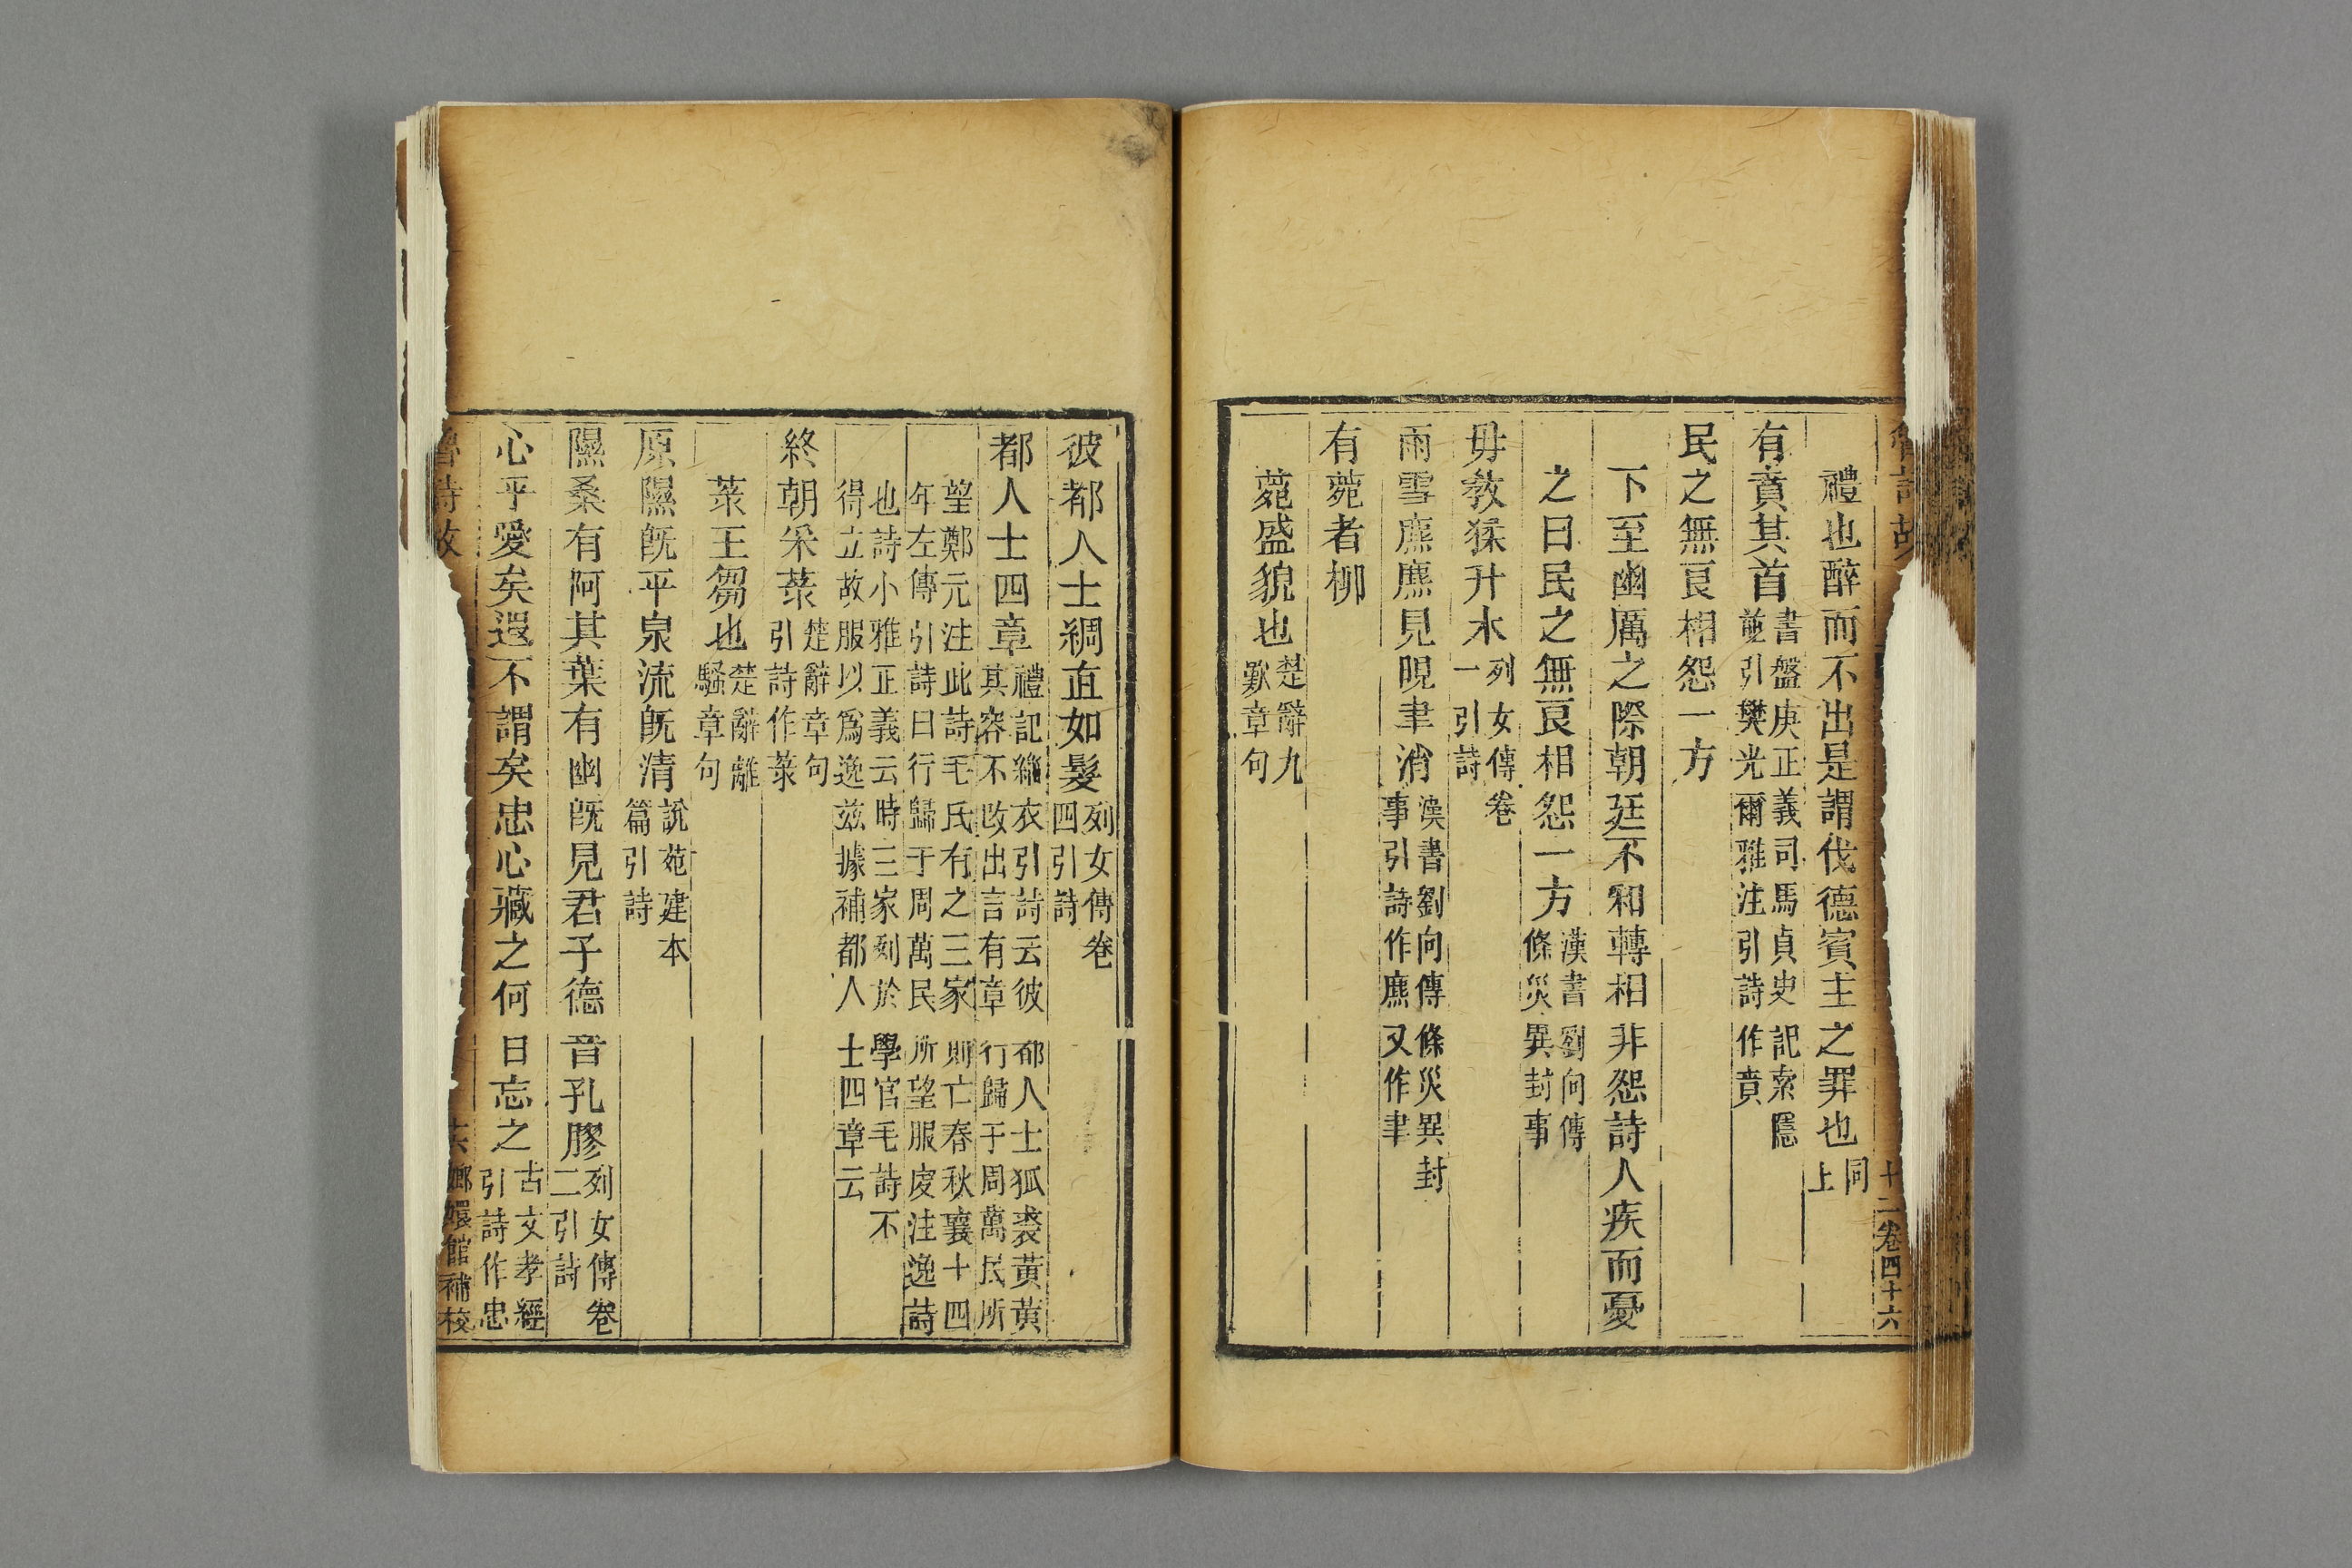 十二卷四十六
禮也醉而不出是謂伐德賓主之罪也同上
有賁其首書盤庚正義司馬貞史記索隱並引樊光爾雅注引詩作賁
民之無良相怨一方
下至幽厲之際朝廷不和轉相非怨詩人疾而憂
之曰民之無良相怨一方漢書劉向傳條災異封事
毋敎猱升木列女傳卷一引詩
雨雪麃麃見晛聿消漢書劉向傳條災異封事引詩作麃又作聿
有菀者柳
菀盛貌也楚辭九歎章句
彼都人士綢直如髮列女傳卷四引詩
都人士四章禮記緇衣引詩云彼都人士狐裘黃黃其容不改出言有章行歸于周萬民所
望鄭元注此詩毛氏有之三家則亡春秋襄十四年左傳引詩曰行歸于周萬民所望服虔注逸詩
也詩小雅正義云時三家列於學官毛詩不得立故服以爲逸兹據補都人士四章云
終朝采菉楚辭章句引詩作菉
菉王芻也楚辭離騷章句
原隰旣平泉流旣清說苑建本篇引詩
隰桑有阿其葉有幽旣見君子德音孔膠列女傳卷二引詩
心乎愛矣遐不謂矣忠心藏之何日忘之古文孝經引詩作忠
魯詩故
嬛館補校